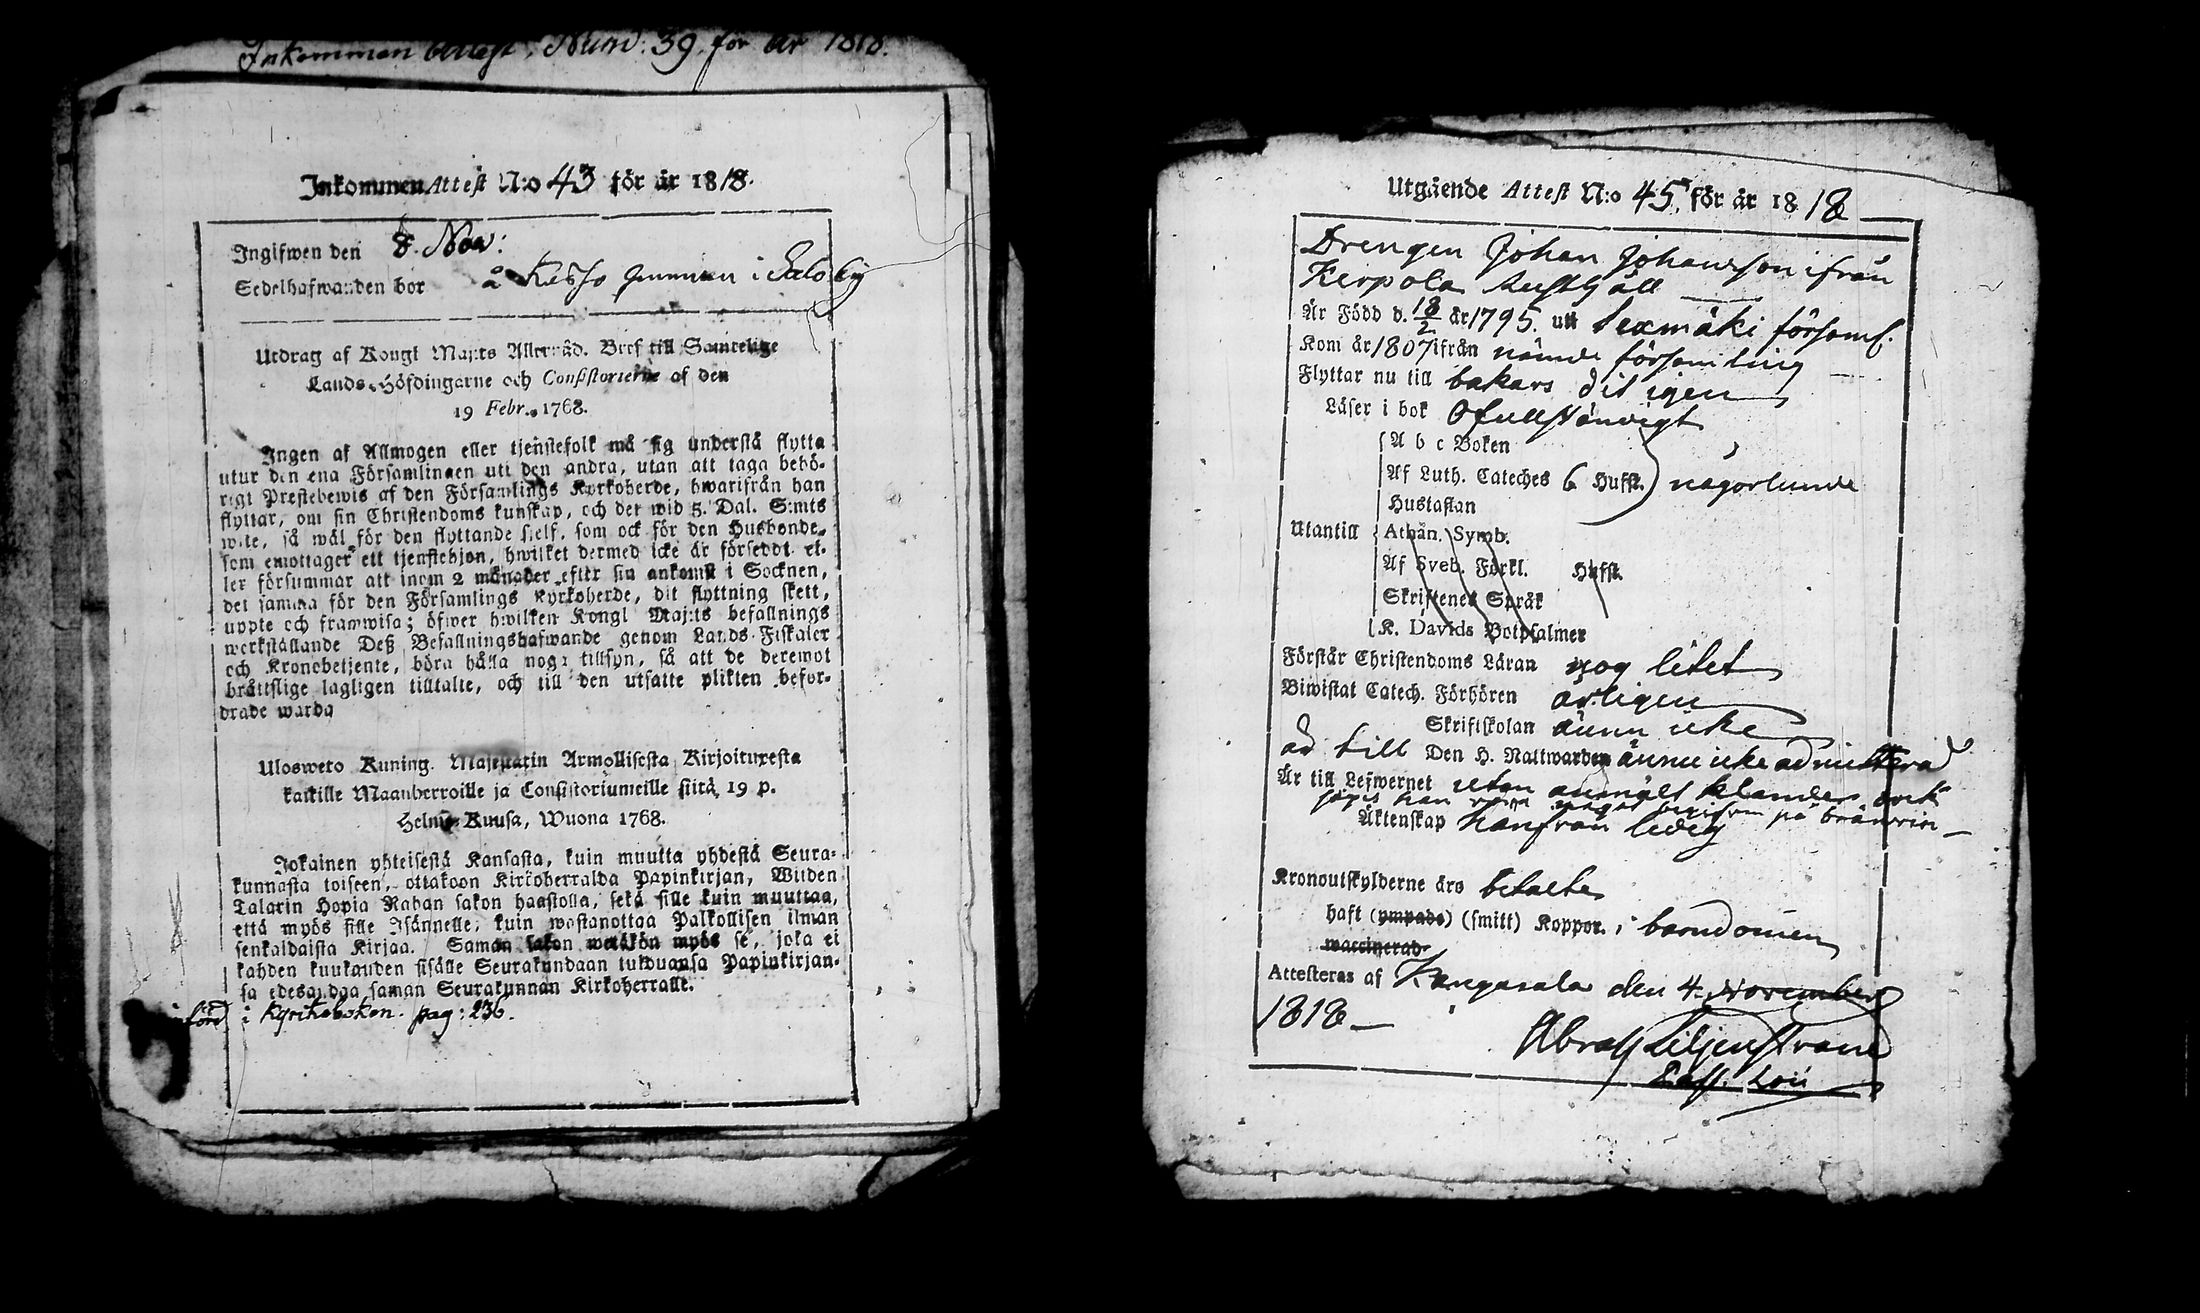 Inkommen Attest. Num: 39. för år 1818.
Inkommen Attest N:o 43 för år 1818.
Ingifwen den 8. Nov:
Sedelhafwanden bor å Kåsso hemman i Salo by
Utdrag af Kongl Maj:ts Allernåd. Bref till Samtelige
Lands-Höfdingarne och Consistorierne af den
19 Febr. 1768.
Ingen af Allmogen eller tjenstefolk må sig understå flytta
utur den ena Församlingen uti den andra, utan att taga behö-
rigt Prestebewis af den Församlings Kyrkoherde, hwarifrån han
flyttar, om sin Christendoms kunskap, och det wid 5. Dal. S:mts
wite, så wäl för den flyttande sjelf, som ock för den Husbonde,
som emottager ett tjenstehjon, hwilket dermed icke är förseddt el-
ler försummar att inom 2 månader efter sin ankomst i Socknen,
det samma för den Församlings Kyrkoherde, dit flyttning skett,
uppte och framwisa; öfwer hwilken Kongl Maj:ts befallnings
werkställande Deß Befallningshafwande genom Lands-Fiskaler
och Kronobetjente, böra hålla noga tillsyn, så att de deremot
bråttslige lagligen tilltalte, och till den utsatte plikten befor-
drade warda
Ulosweto Kuning. Majestatin Armollisesta Kirjoituxesta
kaikille Maanherroille ja Consistoriumeille siitä 19 p.
Helmi-Kuusa, Wuona 1768.
Jokainen yhteisestä Kansasta, kuin muutta yhdestä Seura-
kunnasta toiseen, ottakoon Kirkoherralda Papinkirjan, Wiiden
Talarin Hopia Rahan sakon haastolla, sekä sille kuin muuttaa,
että myös sille Isännelle, kuin wastanottaa Palkollisen ilman
senkaldaista Kirjaa. Saman sakon wetäkön myös se, joka ei
kahden kuukauden sisälle Seurakundaan tulduansa Papinkirjan-
sa edesandaa saman Seurakunnan Kirkoherralle.
införd i Kyrkoboken. pag: 236.
Utgående Attest N:o 45, för år 1818
Drengen Johan Johansson ifrån
Kerpola Rusthåll
Är Född d. 18/2 år 1795. uti Lexmäki församl.
Kom år 1807 ifrån nämde församling
Flyttar nu till bakars dit igen
Läser i bok Ofullständigt
A b c Boken
Af Luth. Cateches 6 Hufst. någorlunda
Hustaflan
Utantill Athan. Symb.
Af Sveb. Förkl. Hufst.
Skriftenes Språk
K. Davids Botpsalmer
Förstår Christendoms Läran nog litet
Biwistat Catech. Förhören årligen
Skriftskolan ännu icke
ad till Den H. Nattwarden ännu icke admitterad
Är till Lefwernet utan anmält klander, ock
säges han vara något begifven på bränvin
Äktenskap härifrån ledig
Kronoutskylderne äro betalte
haft (ympade) (smitt) Koppor, i barndomen
waccinerad
Attesteras af Kangasala den 4. November
1818
Abrah Liljenstrand